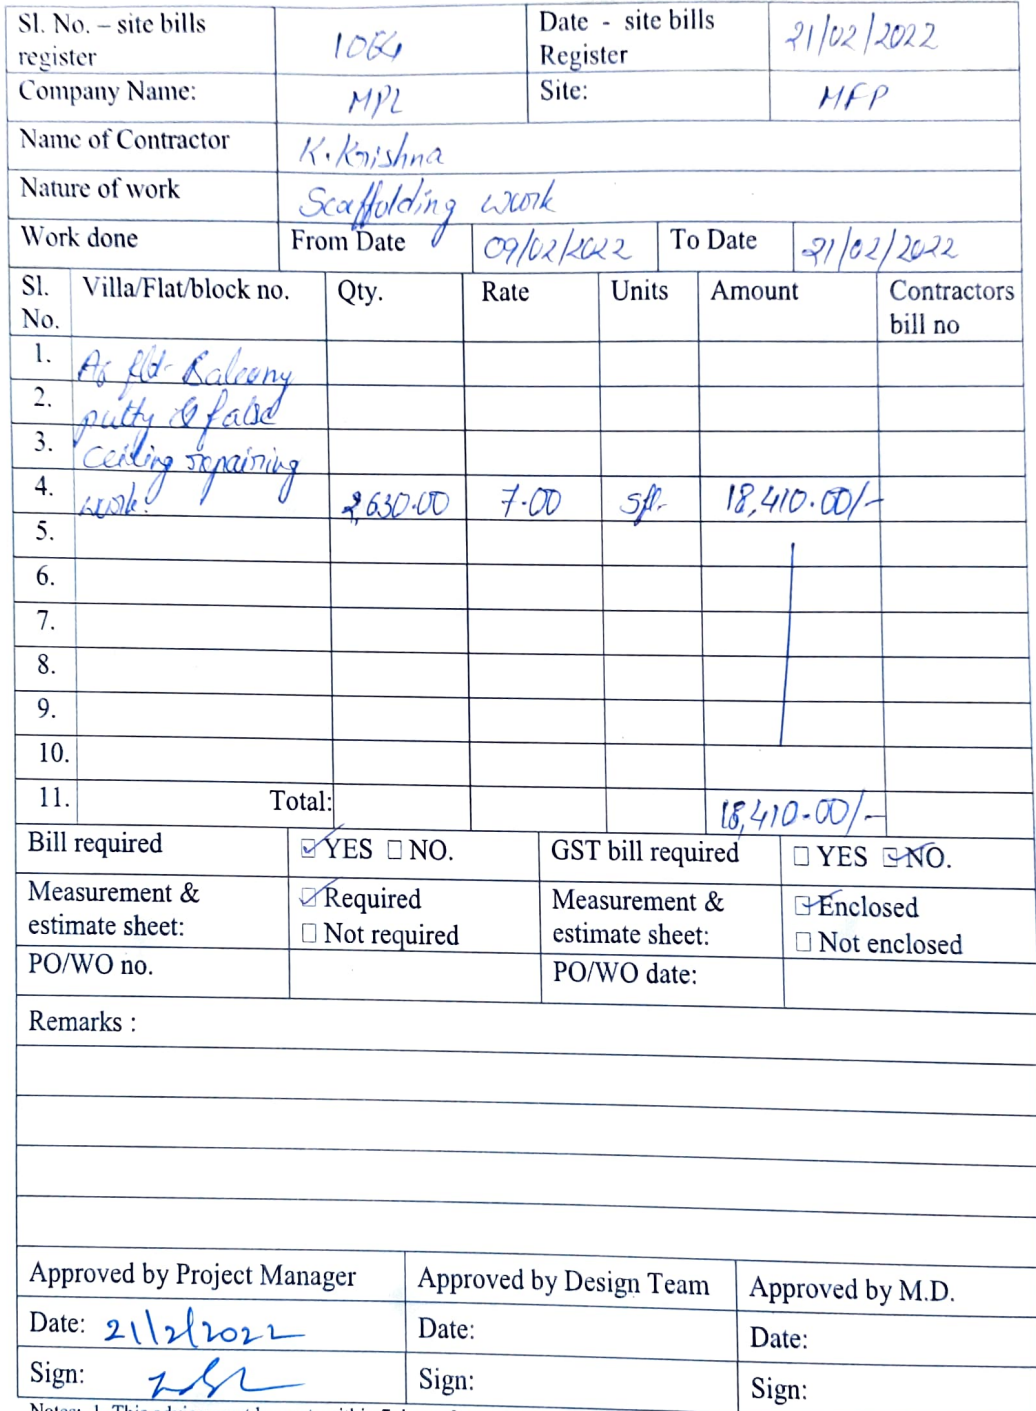 Sl. No. – site bills register 1064 Date - site bills Register 21/02/2022
Company Name: MPL Site: MFP
Name of Contractor K. Krishna
Nature of work Scaffolding work
Work done From Date 09/02/2022 To Date 21/02/2022
Sl. No. Villa/Flat/block no. Qty. Rate Units Amount Contractors bill no
1. Balcony
2. putty & false
3. ceiling repairing
4. work. 2,630.00 7.00 sft. 18,410.00/-
5.
6.
7.
8.
9.
10.
11. Total: 18,410.00/-
Bill required ☑ YES ☐ NO. GST bill required ☐ YES ☑ NO.
Measurement & estimate sheet: ☑ Required ☐ Not required Measurement & estimate sheet: ☑ Enclosed ☐ Not enclosed
PO/WO no. PO/WO date:
Remarks :
Approved by Project Manager Approved by Design Team Approved by M.D.
Date: 21/2/2022 Date: Date:
Sign: Sign: Sign: